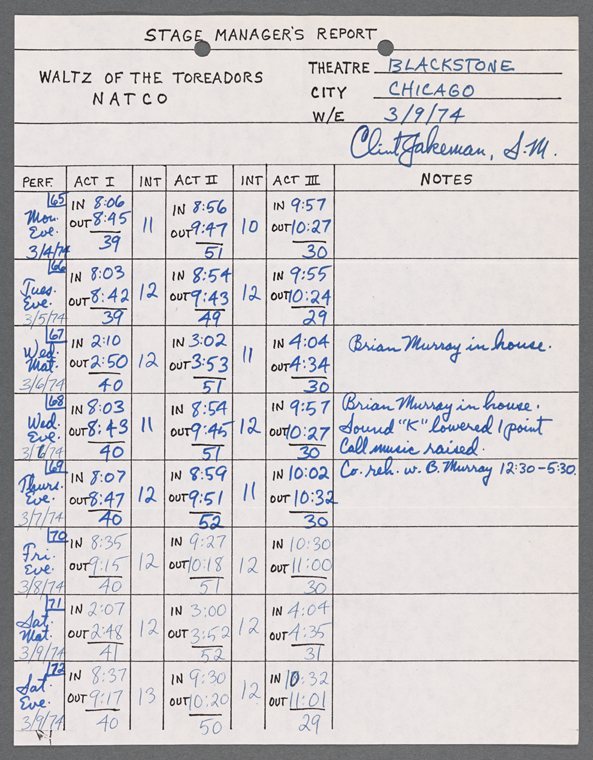 STAGE MANAGER'S REPORT
WALTZ OF THE TOREADORS
NATCO
THEATRE BLACKSTONE
CITY CHICAGO
W/E 3/9/74
Clint Jakeman, S.M.
PERF. ACT I INT ACT II INT ACT III NOTES
65 Mon. Eve. 3/4/74
IN 8:06
OUT 8:45
39
11
IN 8:56
OUT 9:47
51
10
IN 9:57
OUT 10:27
30
66 Tues. Eve. 3/5/74
IN 8:03
OUT 8:42
39
12
IN 8:54
OUT 9:43
49
12
IN 9:55
OUT 10:24
29
67 Wed. Mat. 3/6/74
IN 2:10
OUT 2:50
40
12
IN 3:02
OUT 3:53
51
11
IN 4:04
OUT 4:34
30
Brian Murray in house.
68 Wed. Eve. 3/6/74
IN 8:03
OUT 8:43
40
11
IN 8:54
OUT 9:45
51
12
IN 9:57
OUT 10:27
30
Brian Murray in house.
Sound "K" lowered 1 point
Call music raised.
69 Thurs. Eve. 3/7/74
IN 8:07
OUT 8:47
40
12
IN 8:59
OUT 9:51
52
11
IN 10:02
OUT 10:32
30
Co. reh. w. B. Murray 12:30-5:30.
70 Fri. Eve. 3/8/74
IN 8:35
OUT 9:15
40
12
IN 9:27
OUT 10:18
51
12
IN 10:30
OUT 11:00
30
71 Sat. Mat. 3/9/74
IN 2:07
OUT 2:48
41
12
IN 3:00
OUT 3:52
52
12
IN 4:04
OUT 4:35
31
72 Sat. Eve. 3/9/74
IN 8:37
OUT 9:17
40
13
IN 9:30
OUT 10:20
50
12
IN 10:32
OUT 11:01
29